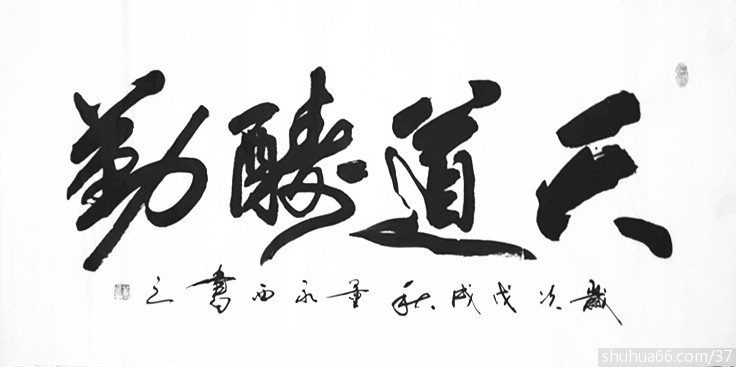 天道酬勤
歲次戊戌秋董永西書之
shuhua66.com/37